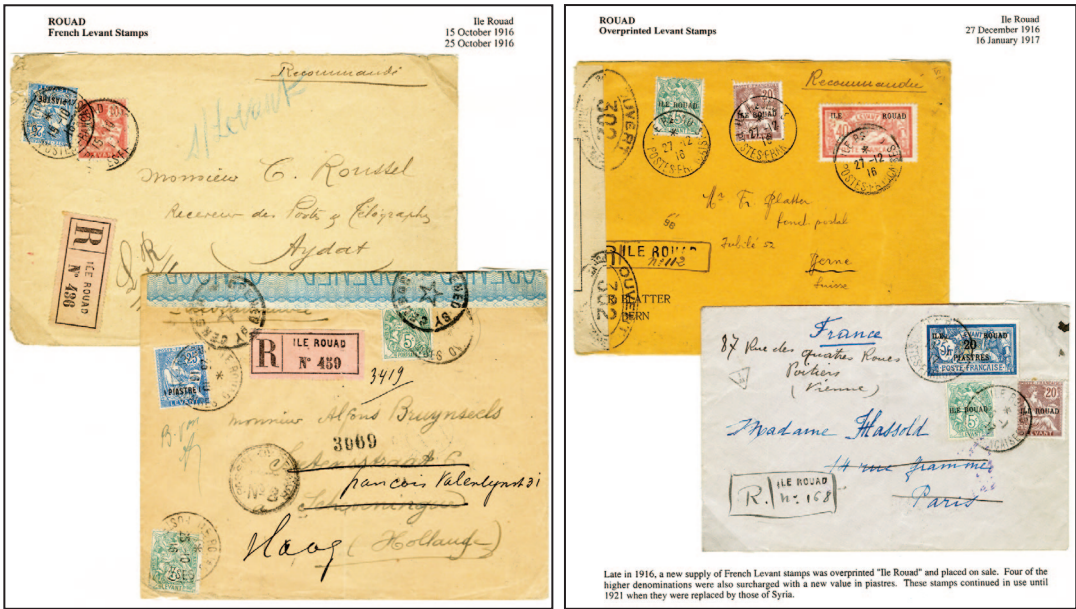 ROUAD
French Levant Stamps
Ile Rouad
15 October 1916
25 October 1916
Recommandé
s/Levant
Monsieur C. Roussel
Receveur des Postes & Télégraphes
Aydat
R
ILE ROUAD
Nº 436
OPENED BY
R
ILE ROUAD
Nº 459
3419
1 PIASTRE
25
5
monsieur Alfons Bruynseels
3069
francois Valentynstr 31
Nº 2
Haag
(Hollande)
ROUAD
Overprinted Levant Stamps
Ile Rouad
27 December 1916
16 January 1917
Recommandée
OUVERT
302
ILE ROUAD
20
ILE ROUAD
ILE ROUAD
27-12
16
POSTES FRANCAISES
27-12
16
27-12
16
Mr Fr. Platter
fond postal
Jubilé 52
Berne
Suisse
R
ILE ROUAD
Nº 112
OUVERT
302
BLATTER
BERN
France
87 Rue des Quatre Roues
Poitiers
(Vienne)
20
PIASTRES
POSTE FRANÇAISE
5
ILE ROUAD
20
ILE ROUAD
LEVANT
Madame Hassold
14 rue Grammes
Paris
R.
ILE ROUAD
Nº 168
Late in 1916, a new supply of French Levant stamps was overprinted "Ile Rouad" and placed on sale. Four of the
higher denominations were also surcharged with a new value in piastres. These stamps continued in use until
1921 when they were replaced by those of Syria.